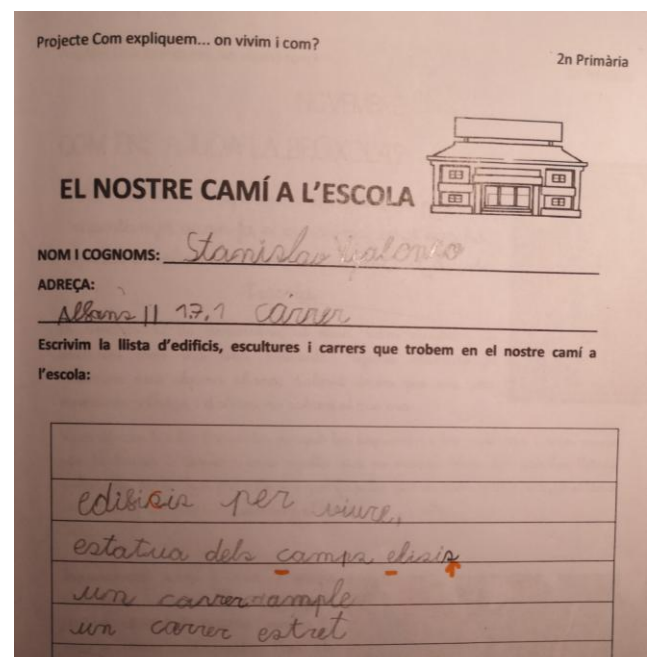 Projecte Com expliquem... on vivim i com?
2n Primària
EL NOSTRE CAMÍ A L'ESCOLA
NOM I COGNOMS: Stanislav
ADREÇA:
17,1 carrer
Escrivim la llista d'edificis, escultures i carrers que trobem en el nostre camí a
l'escola:
edificis per viure,
estatua dels camps elisis
un carrer ample
un carrer estret